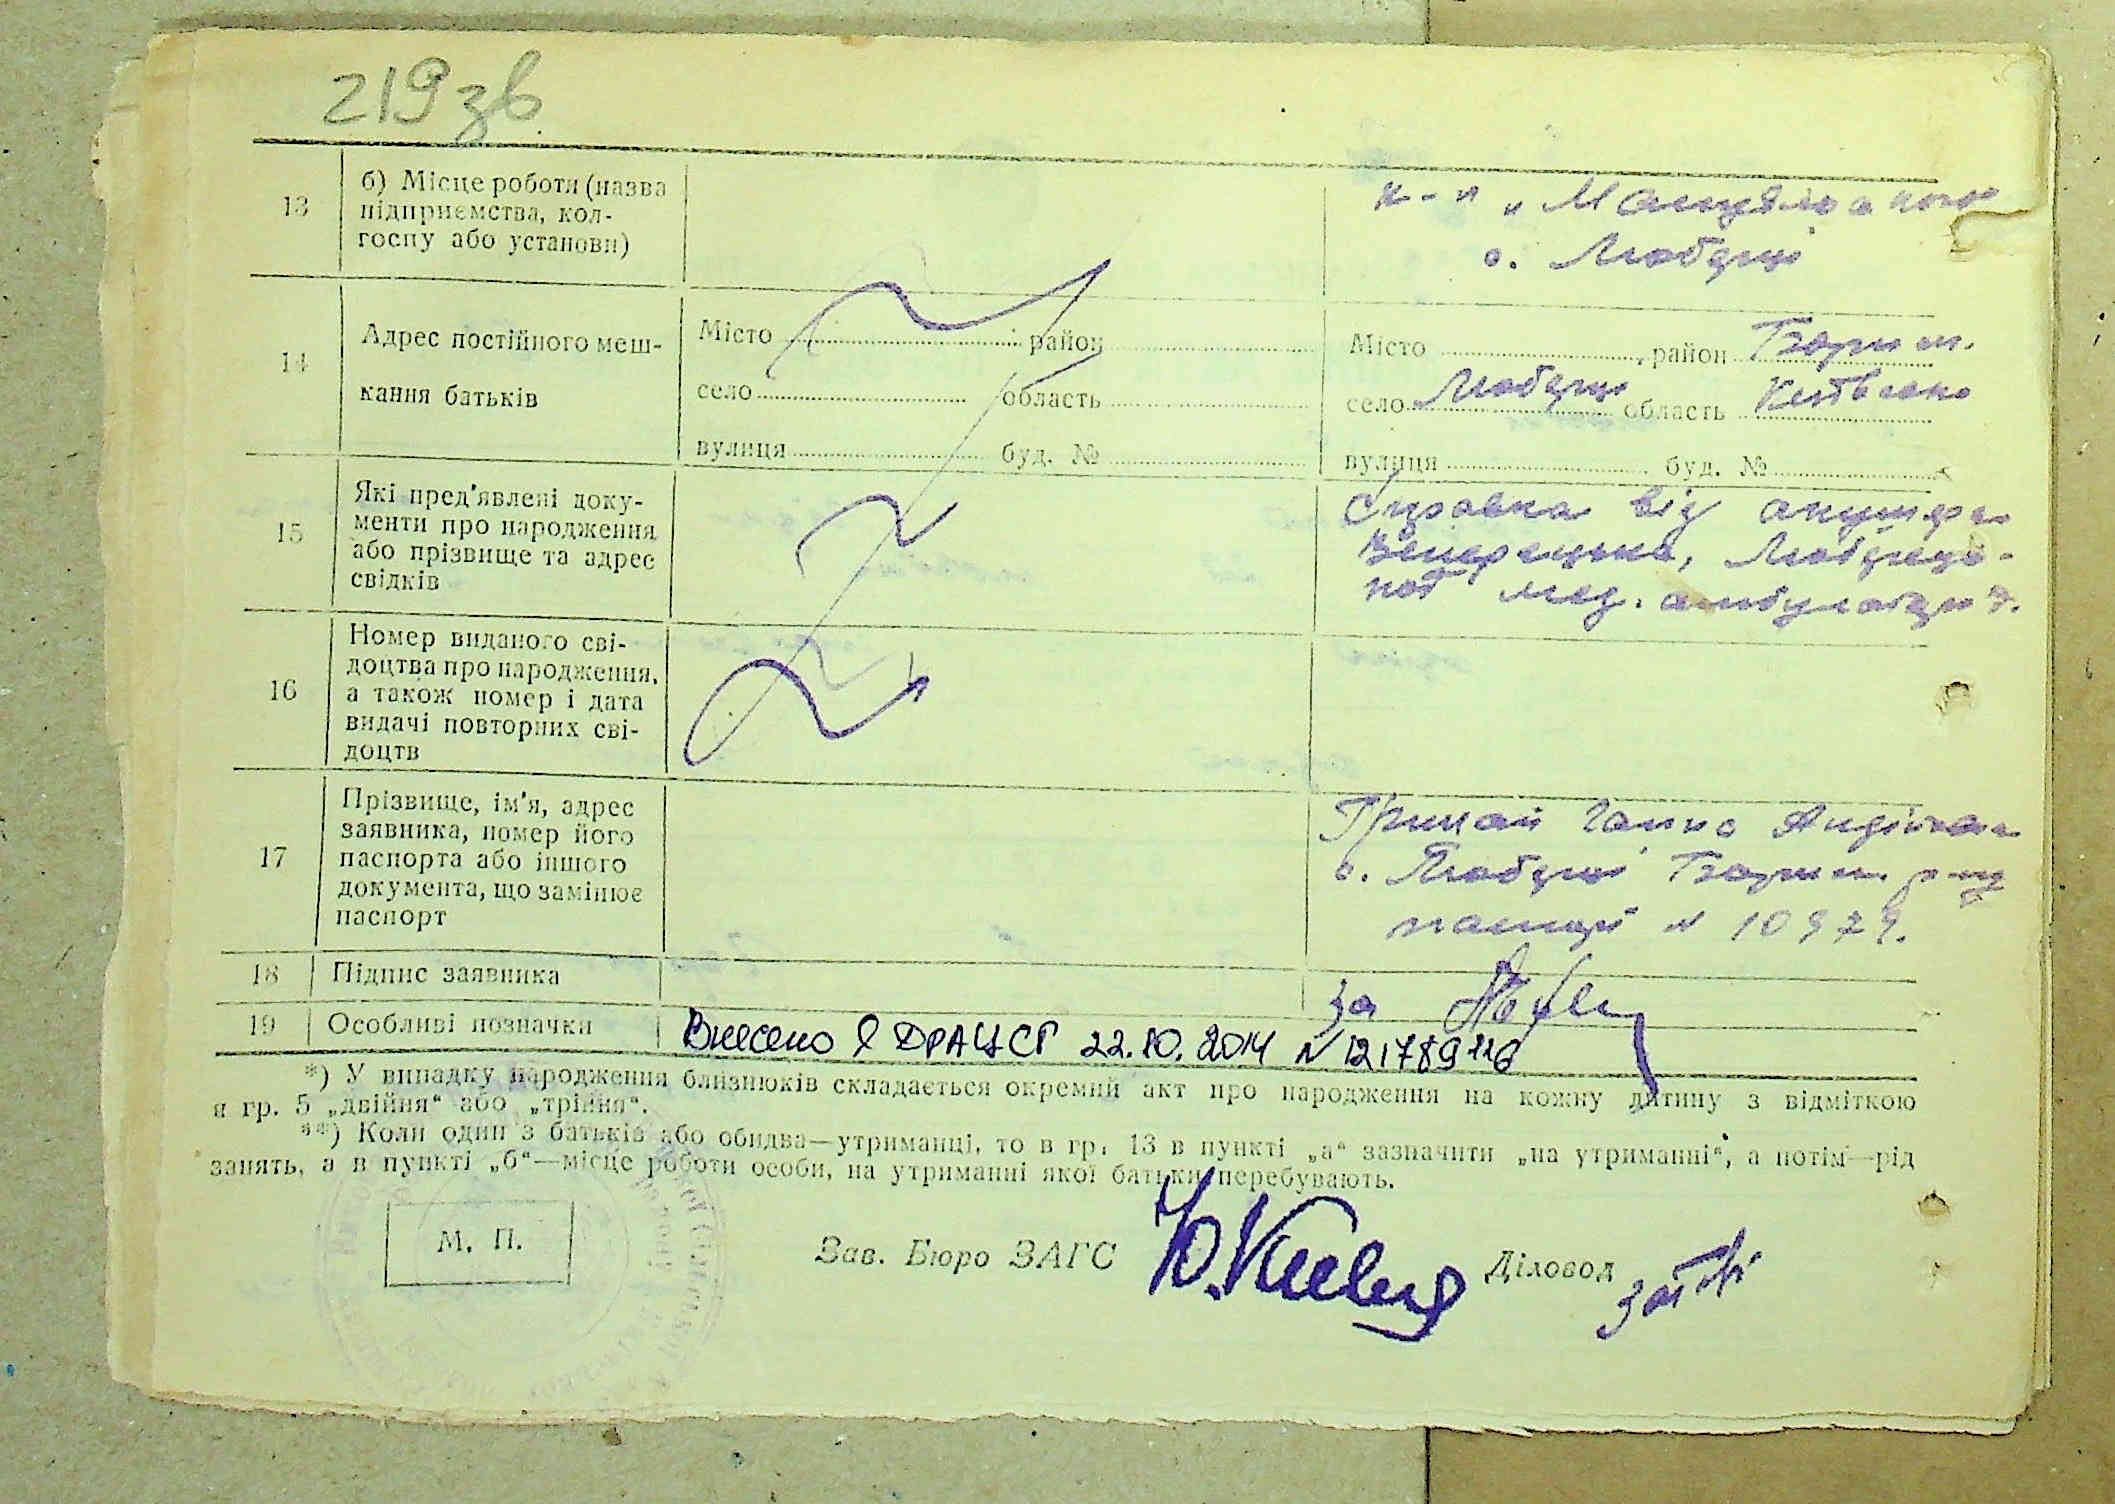 219зв
13
б) Місце роботи (назва
підприємства, кол-
госпу або установи)
с. Любарці
14
Адрес постійного меш-
кання батьків
Місто район
село область
вулиця буд. №
Місто , район
село Любарці область
вулиця буд. №
15
Які пред'явлені доку-
менти про народження
або прізвище та адрес
свідків
Справка від акушера
Любарець-
кої мед. амбулаторії.
16
Номер виданого сві-
доцтва про народження,
а також номер і дата
видачі повторних сві-
доцтв
17
Прізвище, ім'я, адрес
заявника, номер його
паспорта або іншого
документа, що замінює
паспорт
Грицай Ганна Андріївна
с. Любарці
18
Підпис заявника
за
19
Особливі позначки
Внесено в ДРАЦСГ 22.10.2014 N 121789116
*) У випадку народження близнюків складається окремий акт про народження на кожну дитину з відміткою
в гр. 5 „двійня“ або „трійня“.
**) Коли один з батьків або обидва—утриманці, то в гр. 13 в пункті „а“ зазначити „на утриманні“, а потім—рід
занять, а в пункті „б“—місце роботи особи, на утриманні якої батьки перебувають.
М. П.
Зав. Бюро ЗАГС
Діловод